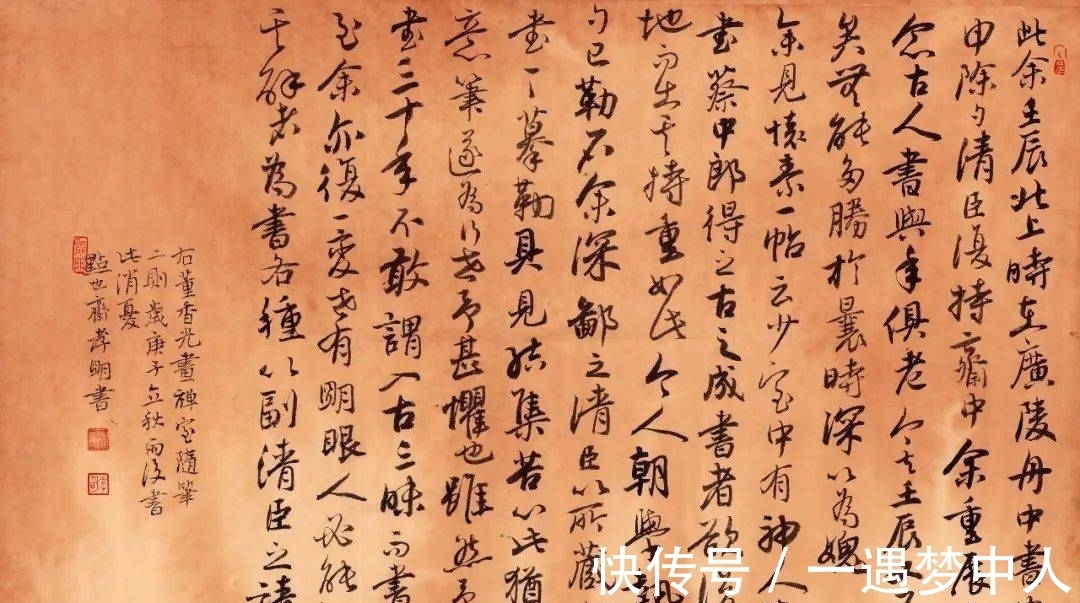 此余壬辰北上時在廣陵舟中書
申除夕清臣復持齋中余重展
念古人書與年俱老今去壬辰
矣無能多勝於曩時深以為媿
余見懷素一帖云少室中有神人
書蔡中郎得之古之成書者欲
地而生其持重如此今人朝學
夕已勒石余深鄙之清臣以所藏
書一一摹勒具見結集苦心此猶
意筆遂為行世予甚懼也雖然予
書三十年不敢謂入古三昧而書
至余亦復一變世有明眼人必能
其解者為書各種以副清臣之請
右董香光畫禪室隨筆
二則歲庚子立秋雨後書
此消憂
點也齋孝明書
快传号 / 一遇梦中人